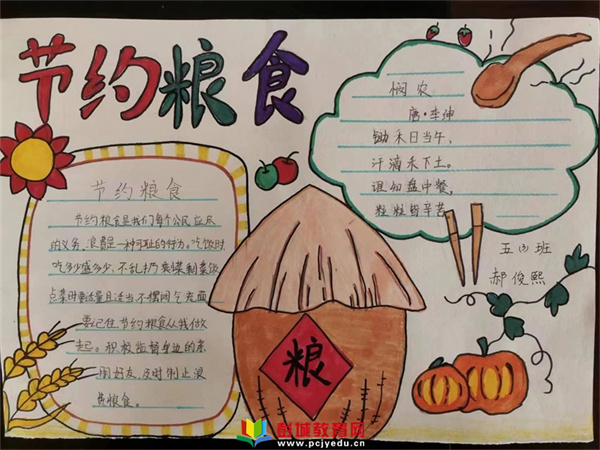 节约粮食
节约粮食
节约粮食是我们每个公民应尽
的义务，浪费是一种可耻的行为。吃饭时
吃多少盛多少，不乱扔剩菜剩饭
点菜时要适量且适当 不摆阔气 充面
要记住节约粮食从我做
起。积极监督身边的亲
朋好友，及时制止浪
费粮食。
悯农
唐·李绅
锄禾日当午，
汗滴禾下土。
谁知盘中餐，
粒粒皆辛苦
五(3)班
郝俊熙
粮
彭城教育网
www.pcjyedu.cn